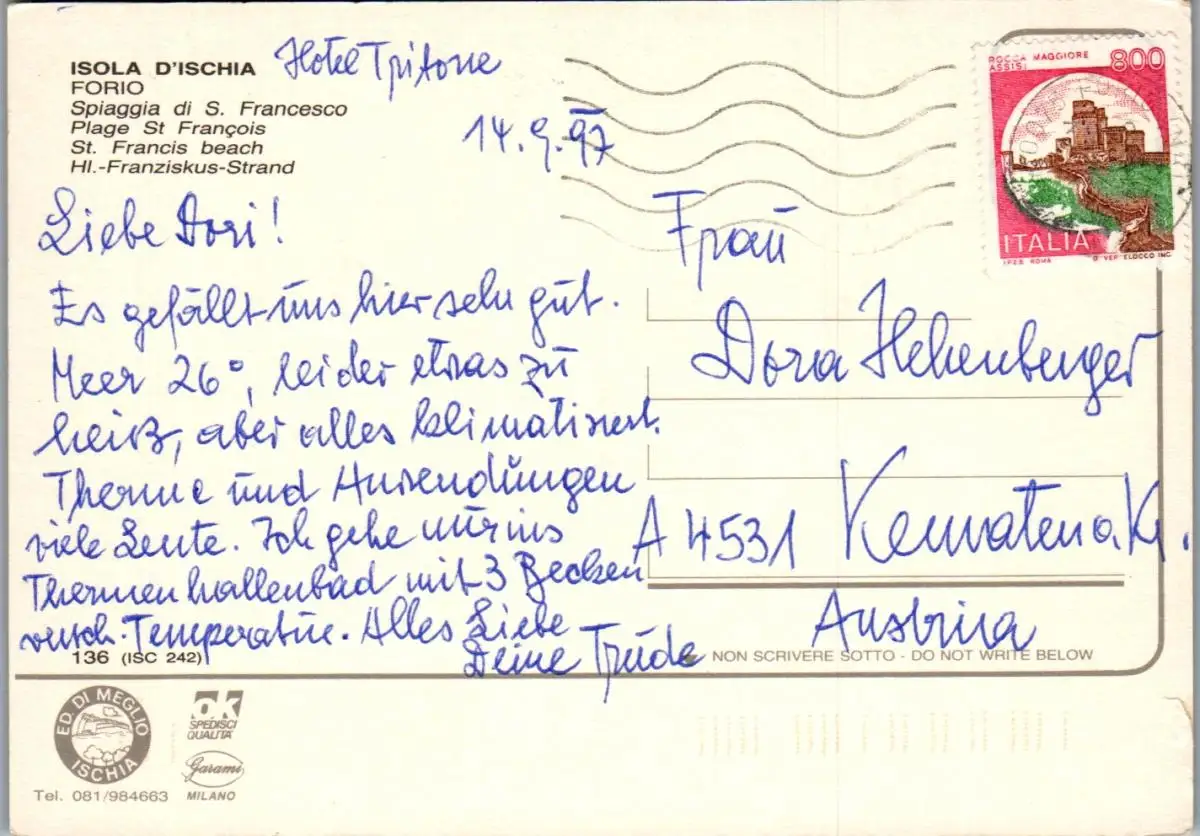 ISOLA D'ISCHIA
FORIO
Spiaggia di S. Francesco
Plage St François
St. Francis beach
Hl.-Franziskus-Strand
Hotel Tritone
14.9.97
Liebe Dori!
Es gefällt uns hier sehr gut.
Meer 26°, leider etwas zu
heiß, aber alles klimatisiert.
Therme und Anwendungen
viele Leute. Ich gehe nur ins
Thermenhallenbad mit 3 Becken
versch. Temperatur. Alles Liebe
Deine Trude
136 (ISC 242)
ROCCA MAGGIORE
ASSISI
800
ITALIA
I.P.Z.S. ROMA
Frau
Dora Hehenberger
A 4531 Kematen a. Kr.
Austria
NON SCRIVERE SOTTO - DO NOT WRITE BELOW
ED. DI MEGLIO
ISCHIA
Tel. 081/984663
ok
SPEDISCI
QUALITA'
Garami
MILANO